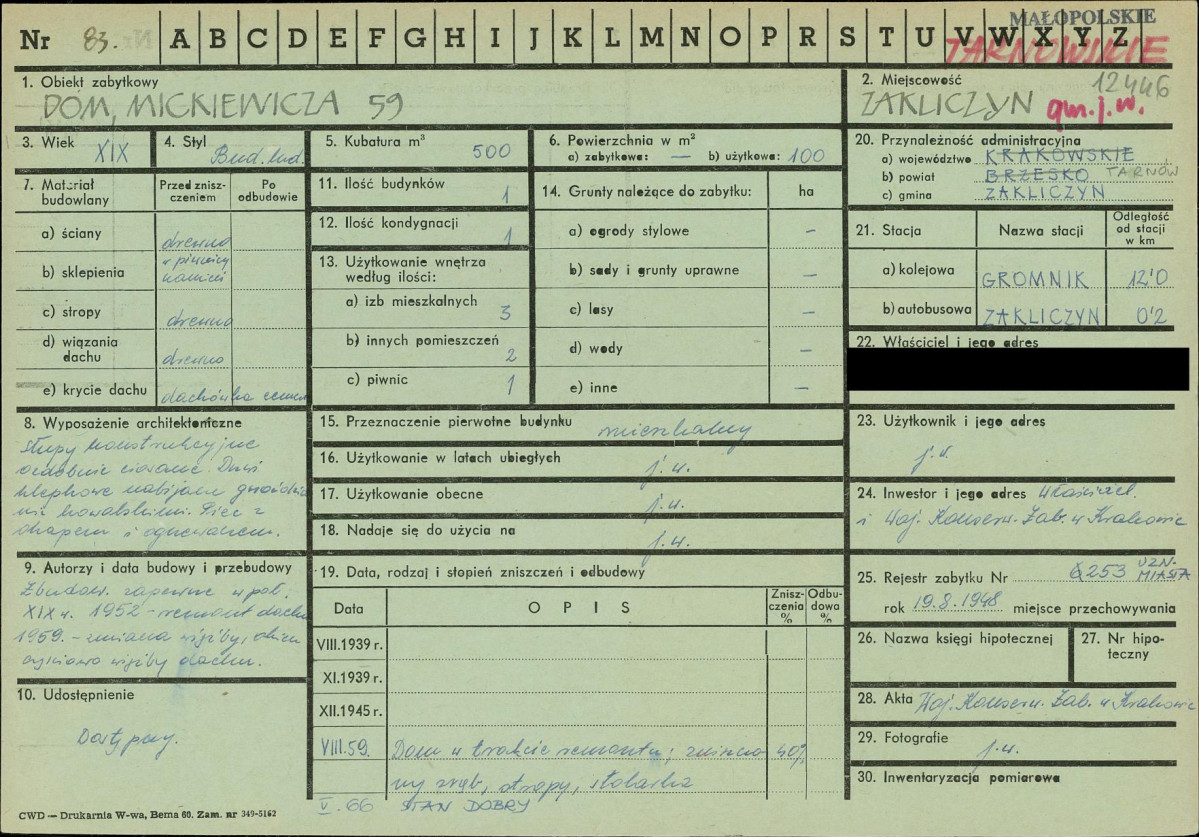 MAŁOPOLSKIE
Nr 83. A B C D E F G H I J K L M N O P R S T U V W X Y Z
TARNOWSKIE
1. Obiekt zabytkowy
DOM, MICKIEWICZA 59
2. Miejscowość 12446
ZAKLICZYN gm. j. w.
3. Wiek XIX
4. Styl Bud. lud.
5. Kubatura m³ 500
6. Powierzchnia w m²
a) zabytkowa: — b) użytkowa: 100
20. Przynależność administracyjna
a) województwo KRAKOWSKIE
b) powiat BRZESKO TARNÓW
c) gmina ZAKLICZYN
7. Materiał budowlany
Przed zniszczeniem
Po odbudowie
a) ściany drewno
b) sklepienia w piwnicy kamień
c) stropy drewno
d) wiązania dachu drewno
e) krycie dachu dachówka cemen
11. Ilość budynków 1
12. Ilość kondygnacji 1
13. Użytkowanie wnętrza według ilości:
a) izb mieszkalnych 3
b) innych pomieszczeń 2
c) piwnic 1
14. Grunty należące do zabytku: ha
a) ogrody stylowe —
b) sady i grunty uprawne —
c) lasy —
d) wody —
e) inne —
21. Stacja
Nazwa stacji
Odległość od stacji w km
a) kolejowa GROMNIK 12'0
b) autobusowa ZAKLICZYN 0'2
22. Właściciel i jego adres
8. Wyposażenie architektoniczne
Słupy konstrukcyjne
ozdobnie ciosane. Drzwi
klepkowe nabijane gwoździa
mi kowalskimi. Piec z
okapem i ogrzewaczem.
15. Przeznaczenie pierwotne budynku mieszkalny
16. Użytkowanie w latach ubiegłych j. w.
17. Użytkowanie obecne j. w.
18. Nadaje się do użycia na j. w.
23. Użytkownik i jego adres
j. w.
24. Inwestor i jego adres Właściciel
i Woj. Konserw. Zab. w Krakowie
9. Autorzy i data budowy i przebudowy
Zbudow. zapewne w poł.
XIX w. 1952 - remont dachu
1959. - zmiana więźby,
częściowo więźby dachu.
19. Data, rodzaj i stopień zniszczeń i odbudowy
Data
OPIS
Zniszczenia %
Odbudowa %
VIII.1939 r.
XI.1939 r.
XII.1945 r.
VIII.59. Dom w trakcie remontu; zniszczo 40%
ny zrąb, stropy, stolarka
V. 66 STAN DOBRY
25. Rejestr zabytku Nr 253 UZN. MIASTA
rok 19.8.1948 miejsce przechowywania
26. Nazwa księgi hipotecznej
27. Nr hipoteczny
10. Udostępnienie
Dostępny.
28. Akta Woj. Konserw. Zab. w Krakowie
29. Fotografie j. w.
30. Inwentaryzacja pomiarowa
CWD — Drukarnia W-wa, Bema 60. Zam. nr 349-5162